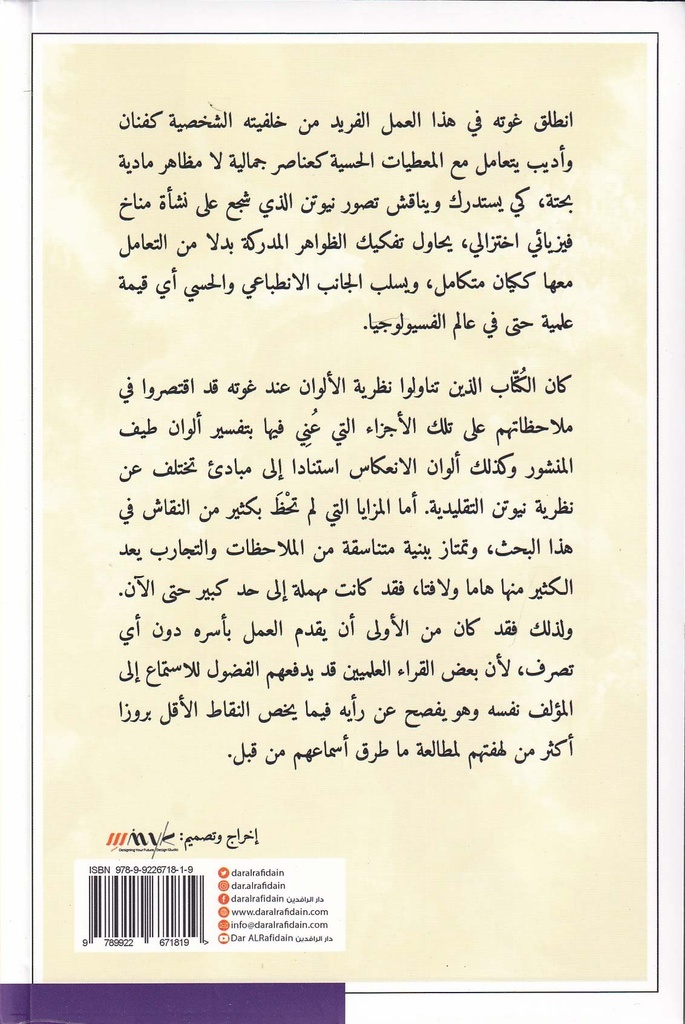 انطلق غوته في هذا العمل الفريد من خلفيته الشخصية كفنان
وأديب يتعامل مع المعطيات الحسية كعناصر جمالية لا مظاهر مادية
بحتة، كي يستدرك ويناقش تصور نيوتن الذي شجع على نشأة مناخ
فيزيائي اختزالي، يحاول تفكيك الظواهر المدركة بدلا من التعامل
معها ككيان متكامل، ويسلب الجانب الانطباعي والحسي أي قيمة
علمية حتى في عالم الفسيولوجيا.
كان الكُتّاب الذين تناولوا نظرية الألوان عند غوته قد اقتصروا في
ملاحظاتهم على تلك الأجزاء التي عُنِي فيها بتفسير ألوان طيف
المنشور وكذلك ألوان الانعكاس استنادا إلى مبادئ تختلف عن
نظرية نيوتن التقليدية. أما المزايا التي لم تحْظَ بكثير من النقاش في
هذا البحث، وتمتاز ببنية متناسقة من الملاحظات والتجارب يعد
الكثير منها هاما ولافتا، فقد كانت مهملة إلى حد كبير حتى الآن.
ولذلك فقد كان من الأولى أن يقدم العمل بأسره دون أي
تصرف، لأن بعض القراء العلميين قد يدفعهم الفضول للاستماع إلى
المؤلف نفسه وهو يفصح عن رأيه فيما يخص النقاط الأقل بروزا
أكثر من لهفتهم لمطالعة ما طرق أسماعهم من قبل.
إخراج وتصميم:
Designing Your Future Design Studio
ISBN 978-9-9226718-1-9
9 789922 671819 >
daralrafidain
dar.alrafidain
daralrafidain دار الرافدين
www.daralrafidain.com
info@daralrafidain.com
Dar ALRafidain دار الرافدين